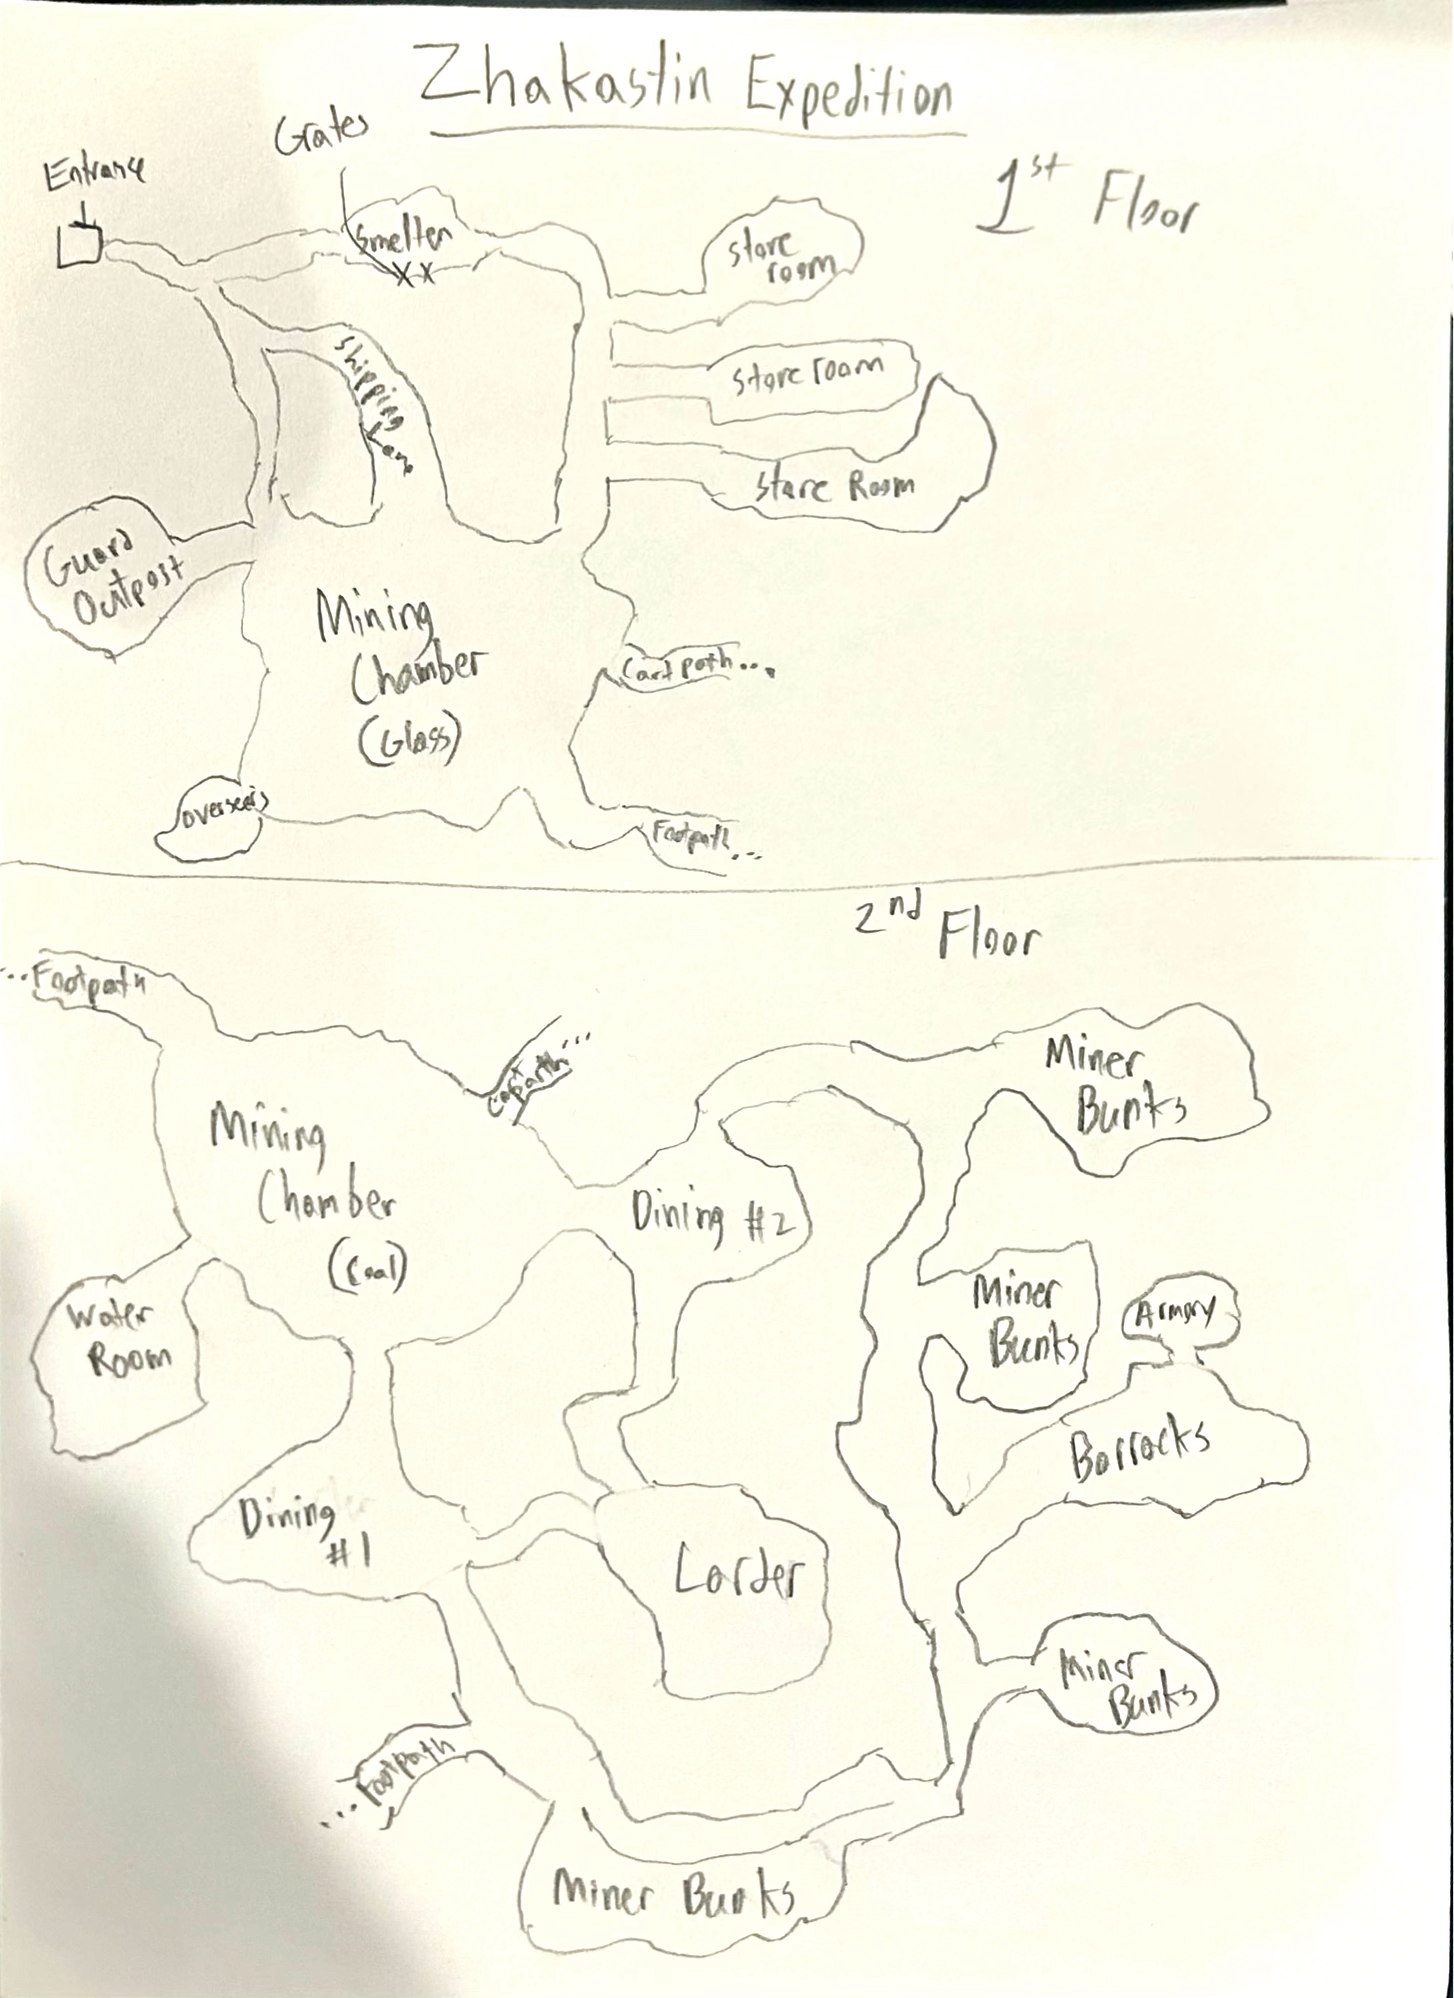 Zhakastin Expedition
1st Floor
Grates
Entrance
Smelter
XX
Store
room
Shipping
Lane
Store room
Store Room
Guard
Outpost
Mining
Chamber
(Glass)
Cart path...
Overseers
Footpath...
2nd Floor
...Footpath
Cart path...
Miner
Bunks
Mining
Chamber
(Coal)
Dining #2
Water
Room
Miner
Bunks
Armory
Barracks
Dining
#1
Larder
Miner
Bunks
...Footpath
Miner Bunks